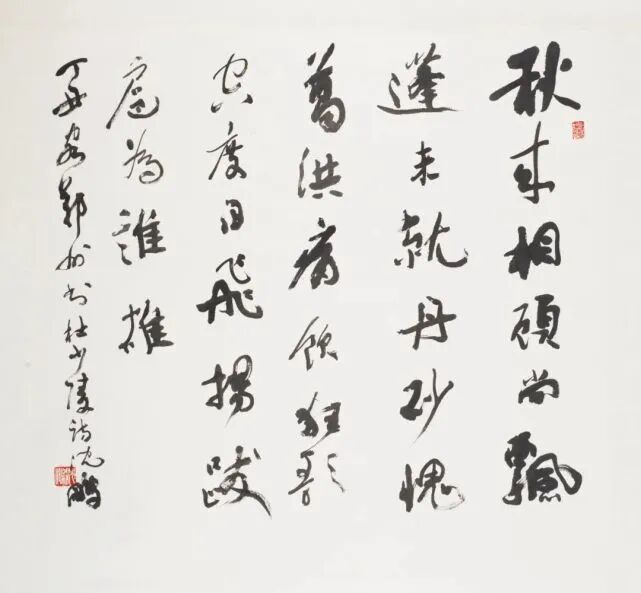 秋来相顾尚飘
蓬未就丹砂愧
葛洪痛饮狂歌
空度日飞扬跋
扈为谁雄
丁丑客郑州书杜少陵诗沈鹏